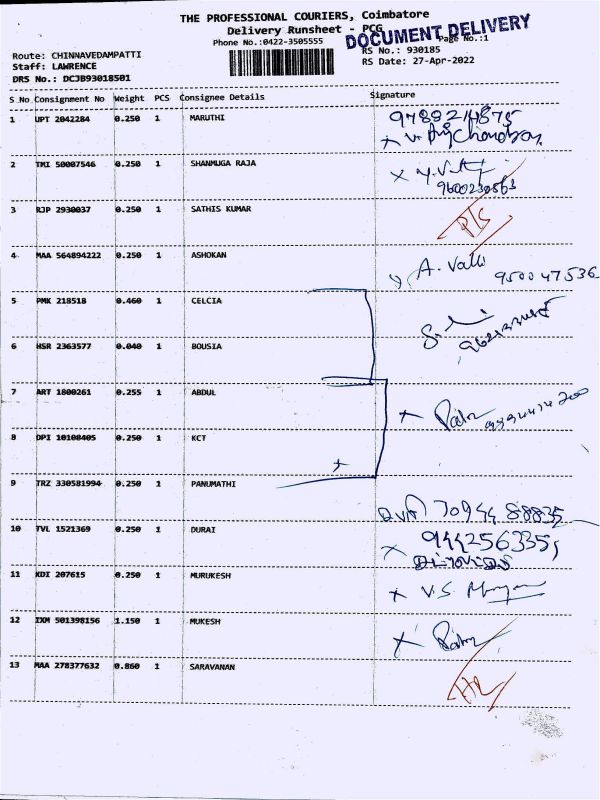 THE PROFESSIONAL COURIERS, Coimbatore
Delivery Runsheet - PCG
DOCUMENT DELIVERY
Phone No.:0422-3505555
Page No.:1
Route: CHINNAVEDAMPATTI
RS No.: 930185
Staff: LAWRENCE
RS Date: 27-Apr-2022
DRS No.: DCJB93018501
S No Consignment No Weight PCS Consignee Details Signature
1 UPT 2042284 0.250 1 MARUTHI
2 TMI 50007546 0.250 1 SHANMUGA RAJA
3 RJP 2930037 0.250 1 SATHIS KUMAR
4 MAA 564894222 0.250 1 ASHOKAN A. Valli
5 PMK 218518 0.460 1 CELCIA
6 HSR 2363577 0.040 1 BOUSIA
7 ART 1800261 0.255 1 ABDUL
8 DPI 10108405 0.250 1 KCT
9 TRZ 330581994 0.250 1 PANUMATHI 70944 88835
10 TVL 1521369 0.250 1 DURAI
11 KDI 207615 0.250 1 MURUKESH V.S
12 IXM 501398156 1.150 1 MUKESH
13 MAA 278377632 0.860 1 SARAVANAN